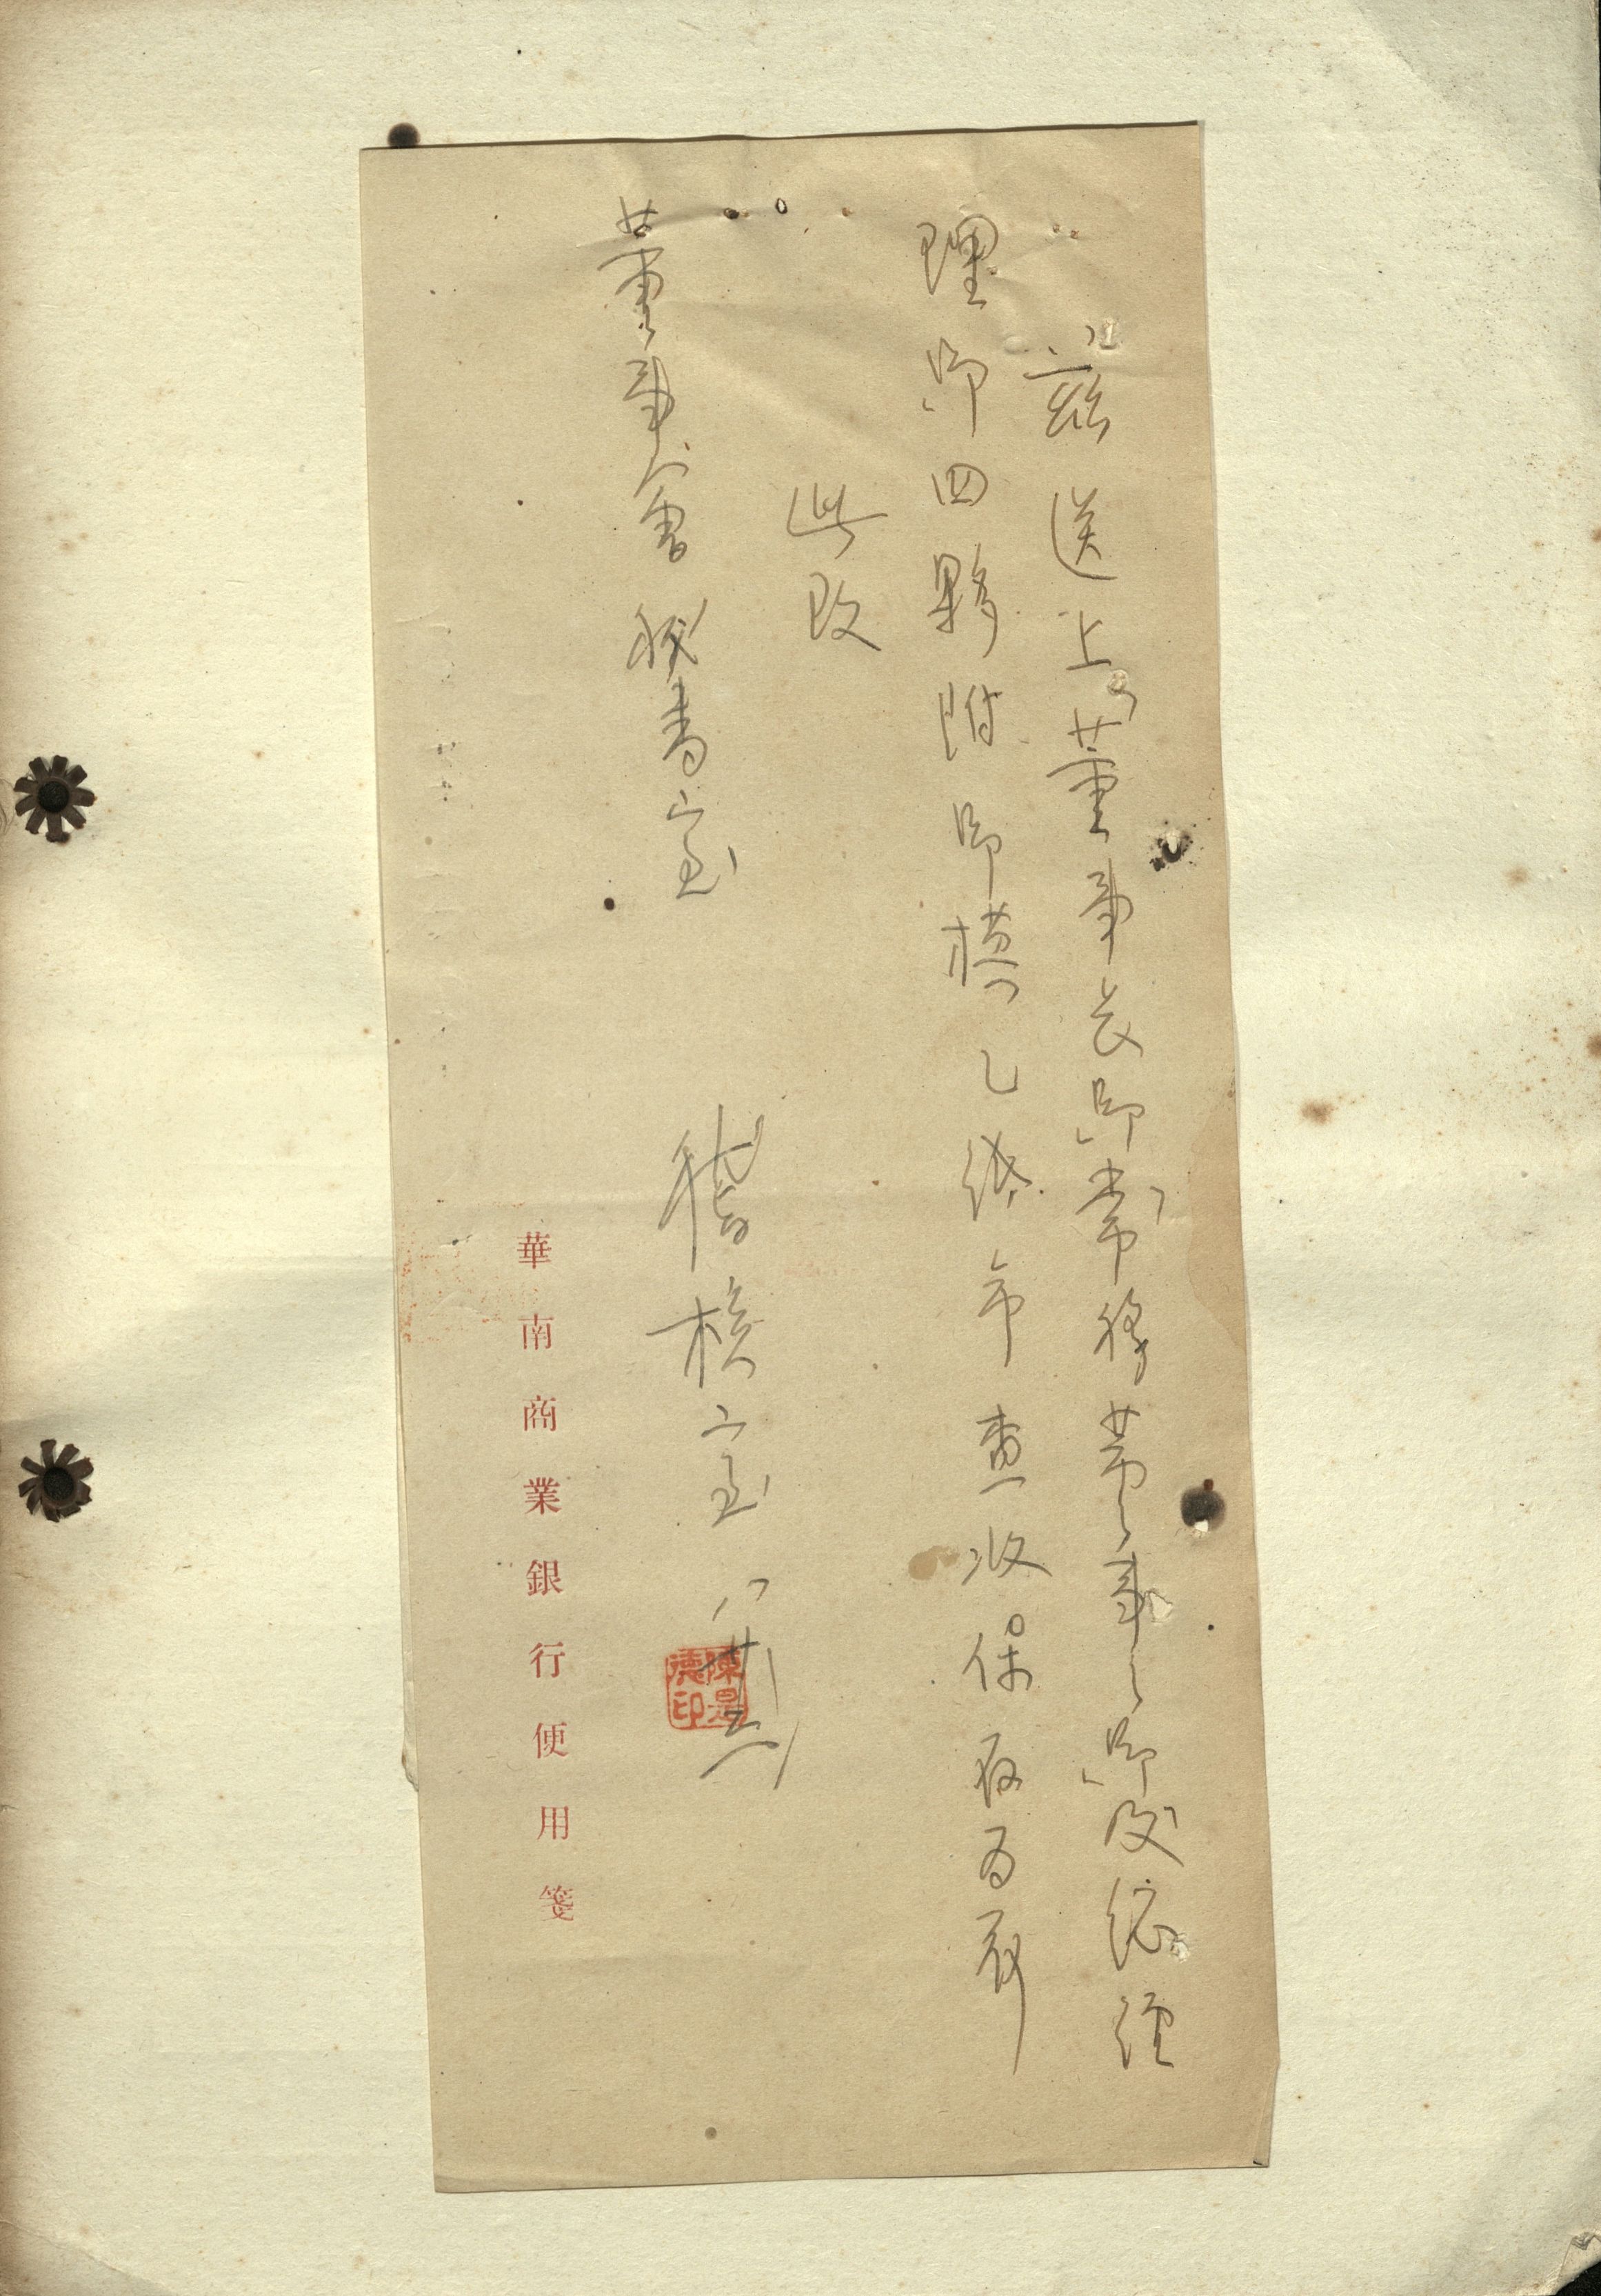 茲送上董事長印常務董事印及總經
理印四夥附印模乙紙希查收保存為荷
此致
董事會秘書室
稽核室 八廿六
陳昆德印
華南商業銀行便用箋